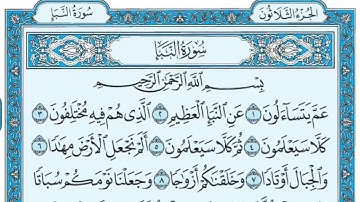 الجزء الثلاثون سورة النبإ
سورة النبإ
بسم الله الرحمن الرحيم
عَمَّ يَتَسَآءَلُونَ ١ عَنِ ٱلنَّبَإِ ٱلۡعَظِيمِ ٢ ٱلَّذِي هُمۡ فِيهِ مُخۡتَلِفُونَ ٣
كَلَّا سَيَعۡلَمُونَ ٤ ثُمَّ كَلَّا سَيَعۡلَمُونَ ٥ أَلَمۡ نَجۡعَلِ ٱلۡأَرۡضَ مِهَٰدٗا ٦
وَٱلۡجِبَالَ أَوۡتَادٗا ٧ وَخَلَقۡنَٰكُمۡ أَزۡوَٰجٗا ٨ وَجَعَلۡنَا نَوۡمَكُمۡ سُبَاتٗا